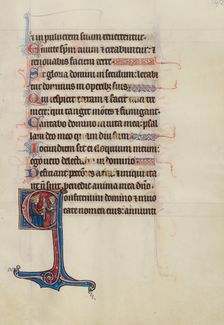 & in pulverem suum revertentur:
Emitte spm tuum & creabuntur: &
renovabis faciem terre
Sit gloria domini in seculum: letabi
tur dominus in operib; suis
Qui respicit terram & facit eam
qui tangit montes & fumigant
Cantabo domino in vita mea: psal
lam deo meo quam diu sum
Iocundum sit ei eloquium meum:
ego vero delectabor in domino
Deficiant & iniqui ita
ut non sint: benedic anima mea dno
Confitemini domino & invo
cate nomen eius: annunt